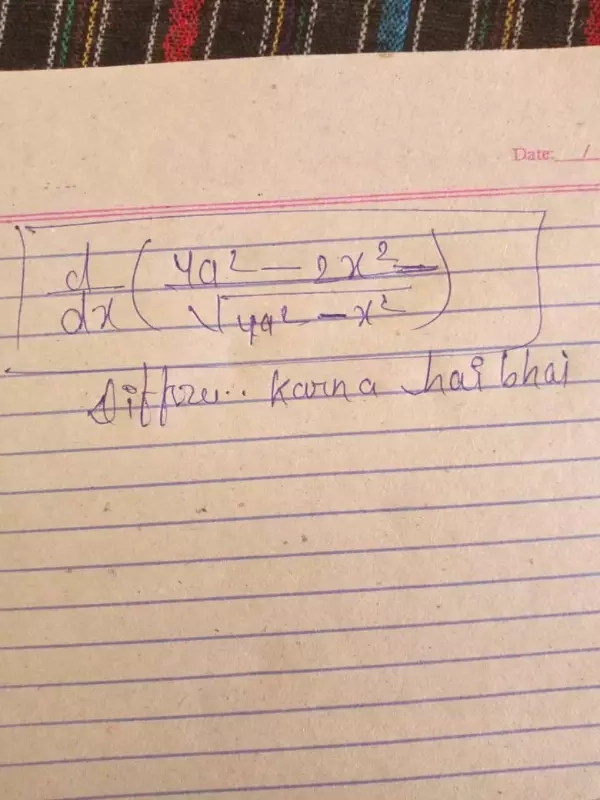 Date: /
d/dx ( 4a² - 2x² / √4a² - x² )
Differe.. karna hai bhai